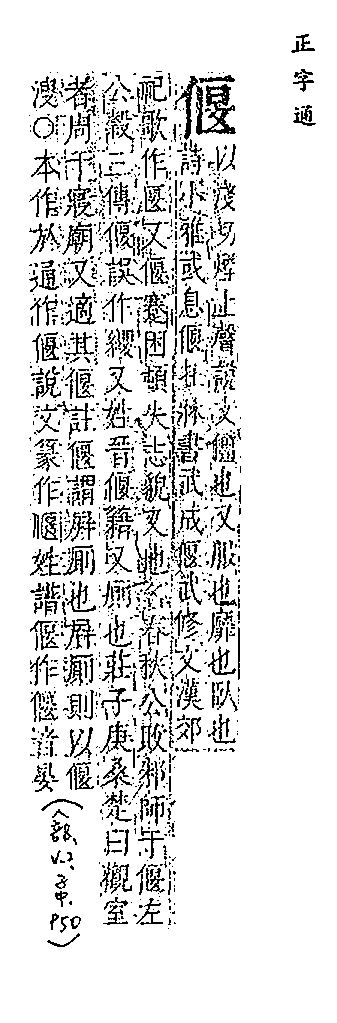 正字通
偃
以淺切煙上聲說文僵也又服也靡也臥也
詩小雅或息偃在牀書武成偃武修文漢郊
祀歌作偃又偃蹇困頓失志貌又地名春秋公敗邾師于偃左
公穀三傳偃誤作纓又姓晉偃籍又廁也莊子庚桑楚曰觀室
者周于寢廟又適其偃註偃謂屏廁也屏廁則以偃
溲○本作於通作偃說文篆作偃姓譜偃作偃音晏